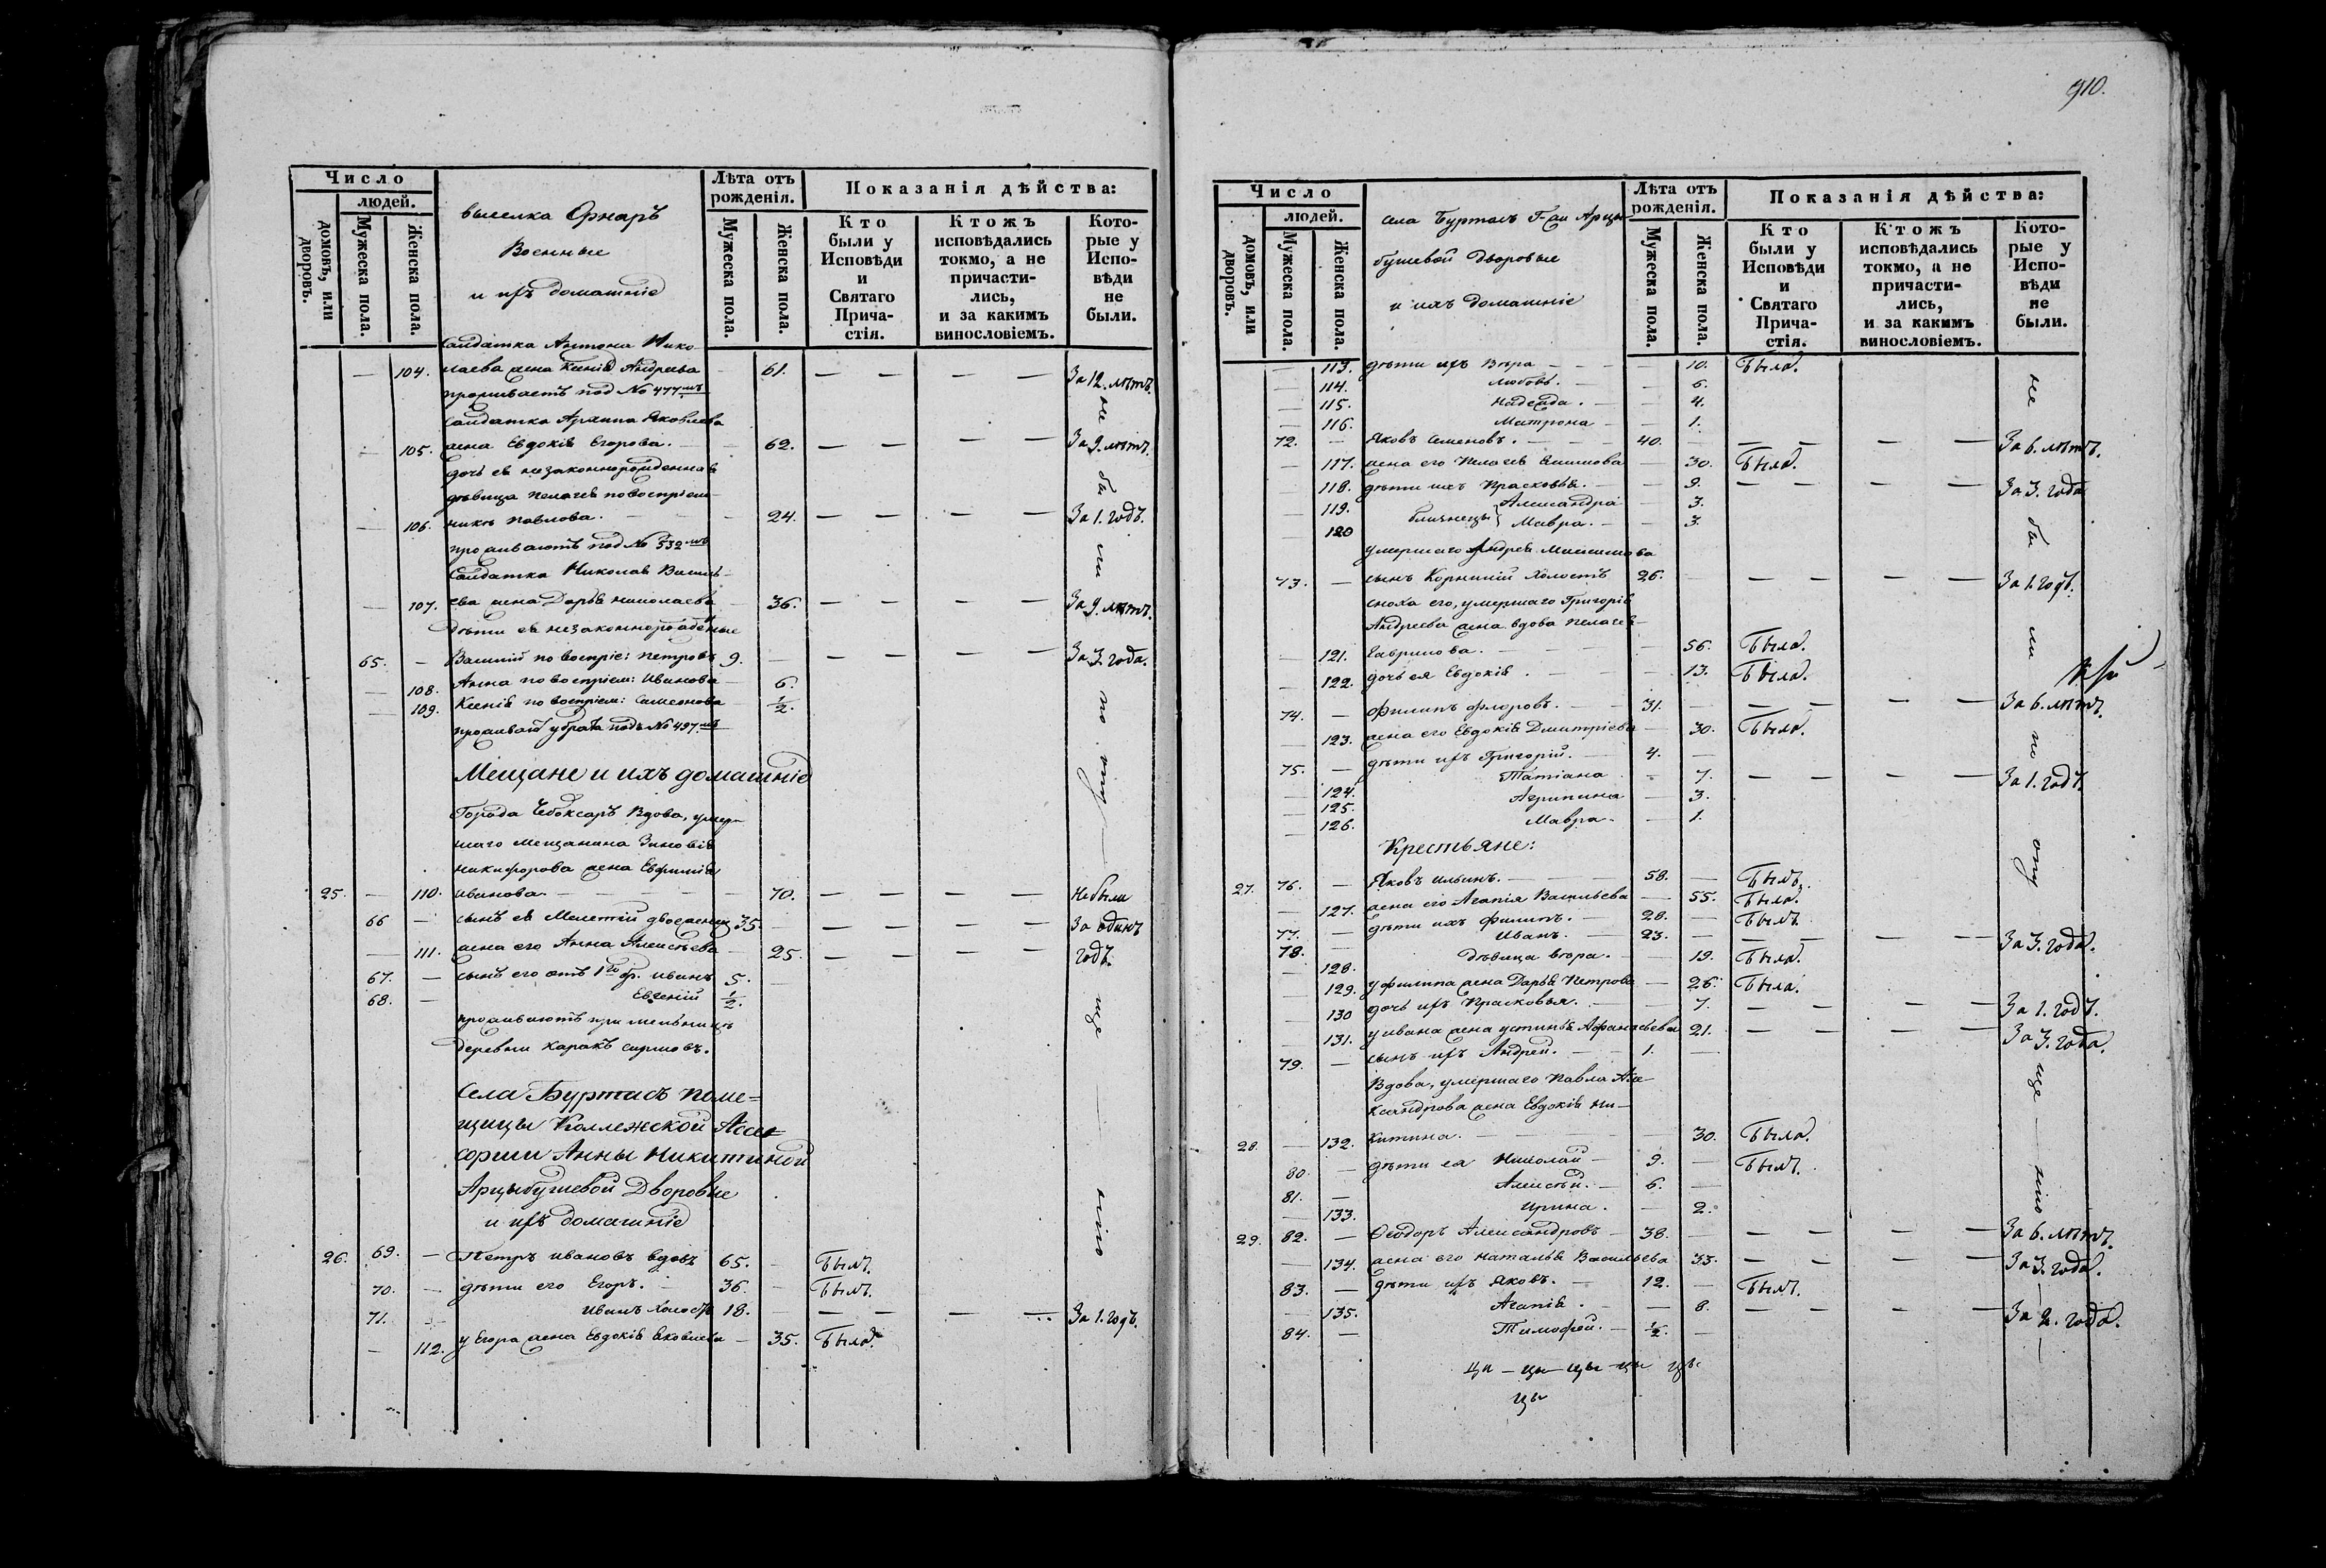 Число
людей.
домовъ, или дворовъ.
Мужеска пола.
Женска пола.
выселка Орнаръ
Военные
и ихъ домашніе
Лѣта отъ рожденія.
Мужеска пола.
Женска пола.
Показанія дѣйства:
Кто были у Исповѣди и Святаго Прича-стія.
Ктожъ исповѣдались токмо, а не причасти-лись, и за какимъ винословіемъ.
Кото-рые у Испо-вѣди не были.
Салдатка Антона Нико-
— 104. лаева жена Ксенія Андреева — 61. — — — — За 12. лѣтъ.
проживаетъ под № 477мъ
Салдатка Яковлева
— 105. жена Евдокія Егорова. — 62. — — — — За 9. лѣтъ.
дочь ея незаконнорожденная
дѣвица Пелагея по воспріем-
— 106. нику Павлова. 24. — — — — За 1. годъ.
проживаютъ под № 532мъ
Салдатка Николая Василь-
— 107. ева жена Дарья Николаева — 36. — — — — За 9. лѣтъ.
Дѣти ея незаконнорожденые
65. — Василій по воспріе: Петровъ 9. — — — — — За 3. года.
— 108. Анна по воспріем: Иванова 6.
— 109. Ксенія по воспріем: Симеонова ½.
проживаютъ у брата подъ № 497мъ
Мещане и ихъ домашніе
Города Чебоксаръ Вдова, умер-
шаго мещанина Зиновія
Никифорова жена Евфимія
25. — 110. Иванова — 70. — — — — Не были
66 — сынъ ея Мелетій двоеженец 35. — — — — — За одинъ
— 111. жена его Анна Алексѣева — 25. — — — — годъ.
67. — сынъ его отъ 1го бр. Иванъ 5. —
68. — Евгеній ½.
проживаютъ при мельницѣ
деревни Каракъ Сирмовъ.
Села Буртасъ Поме-
щицы Коллежской Ассе-
сорши Анны Никитиной
Арцыбушевой Дворовые
и ихъ домашніе
26. 69. — Петръ Ивановъ вдовъ 65. — Былъ.
70. — дѣти его Егоръ. — 36. — Былъ.
71. Иванъ холостъ 18. — — — — За 1. годъ.
— 112. у Егора жена Евдокія Яковлева — 35. Была.
не бы ли по опу — ще — нію
910.
Число
людей.
домовъ, или дворовъ.
Мужеска пола.
Женска пола.
села Буртасъ Г-жи Арцы-
бушевой Дворовые
и ихъ домашніе
Лѣта отъ рожденія.
Мужеска пола.
Женска пола.
Показанія дѣйства:
Кто были у Исповѣди и Святаго Прича-стія.
Ктожъ исповѣдались токмо, а не причасти-лись, и за какимъ винословіемъ.
Кото-рые у Испо-вѣди не были.
— 113. дѣти ихъ Вѣра — — 10. Была.
— 114. Любовь. — — 6.
— 115. Надежда. — — 4.
— 116. Матрона — — 1.
72. — Яковъ Семеновъ. — — 40. — — — — — За 6. лѣтъ.
— 117. жена его Пелагея — 30. Была.
— 118. дѣти ихъ Прасковья. — 9. — — — — За 3. года
— 119. Александра — 3.
— 120 близнецы Мавра. — — 3.
умершаго Андрея
73. — сынъ Корнилій холостъ 26. — — — — — За 1. годъ.
сноха его, умершаго Григорія
Андреева жена вдова Пелагея
— 121. Гаврилова. — 56. Была.
— 122. дочь ея Евдокія. — — 13. Была.
74. — Филипъ Флоровъ. — 31. — — — — — За 6. лѣтъ.
— 123. жена его Евдокія Дмитріева — 30. Была.
75. — дѣти ихъ Григорій. — 4. —
— 124. Татіана — 7. — — — — За 1. годъ.
— 125. Агрипина — 3.
— 126. Мавра. — 1.
Крестьяне:
27. 76. — Яковъ Ильинъ. — — 58. — Былъ.
— 127. жена его Агапія Васильева — 55. Была.
77. — дѣти ихъ Филипъ. — 28. — Былъ.
78. — Иванъ. — 23. — — — — — За 3. года.
— 128. дѣвица Вѣра. — — 19. Была.
— 129. у Филипа жена Дарья Петрова — 26. Была.
— 130 дочь ихъ Прасковья. — — 7. — — — — За 1. годъ.
— 131. у Ивана жена Устинья Афанасьева 21. — — — — За 3. года.
79. — сынъ ихъ Андрей. — — 1. —
Вдова, умершаго Павла Але-
ксандрова жена Евдокія Ни-
28. — 132. китина. — — 30. Была.
80. — дѣти ея Николай — 9. — Былъ.
81. — Алексѣй. — 6. —
— 133. Ирина. — 2.
29. 82. — Ѳеодоръ Александровъ — 38. — — — — — За 6. лѣтъ.
— 134. жена его Наталья Васильева 33. — — — — За 3. года.
83. — дѣти ихъ Яковъ. — 12. — Былъ.
— 135. Агапія. — — 8. — — — — За 2. года.
84. — Тимофей. — ½. —
не бы ли по опу ще — нію